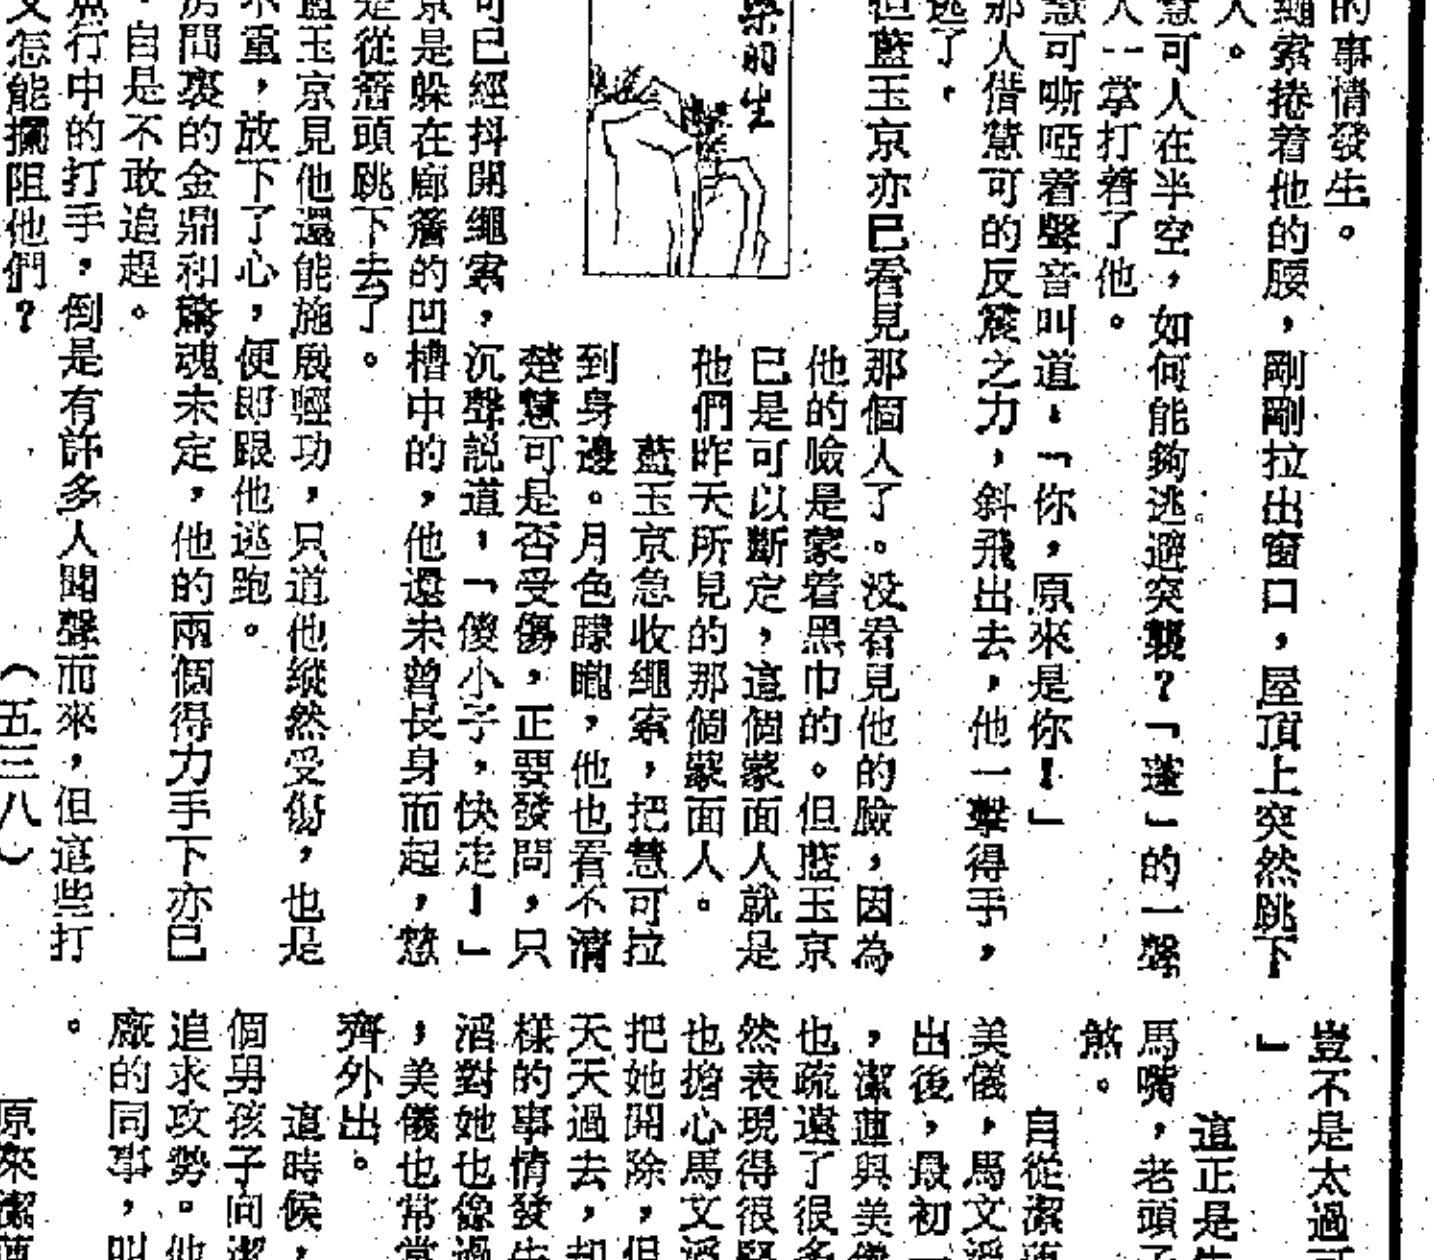 的事情發生。
繩索捲着他的腰，剛剛拉出窗口，屋頂上突然跳下
人。
慧可人在半空，如何能夠逃避突襲？「蓬」的一聲
人一掌打着了他。
慧可嘶啞着聲音叫道：「你，原來是你！」
那人借慧可的反震之力，斜飛出去，他一擊得手，
逃了，
但藍玉京亦已看見那個人了。没看見他的臉，因為
他的臉是蒙着黑巾的。但藍玉京
已是可以斷定，這個蒙面人就是
他們昨天所見的那個蒙面人。
藍玉京急收繩索，把慧可拉
到身邊。月色矇矓，他也看不清
楚慧可是否受傷，正要發問，只
可已經抖開繩索，沉聲説道：「傻小子，快走！」
京是躲在廊簷的凹槽中的，他還未曾長身而起，慧
是從簷頭跳下去了。
藍玉京見他還能施展輕功，只道他縱然受傷，也是
不重，放下了心，便即跟他逃跑。
房間裏的金鼎和驚魂未定，他的兩個得力手下亦已
，自是不敢追趕。
魚行中的打手，倒是有許多人聞聲而來，但這些打
又怎能攔阻他們？
（五三八）
的生
豈不是太過
」
這正是
馬嘴，老頭
煞。
自從潔蓮
美儀，馬文滔
出後，最初一
，潔蓮與美儀
也疏遠了很多
然表現得很
也擔心馬文滔
把她開除，但
天天過去，却
樣的事情發生
滔對她也像過
，美儀也常常
齊外出。
這時候，
個男孩子向潔
追求攻勢。他
廠的同事，叫
。
原來潔蓮